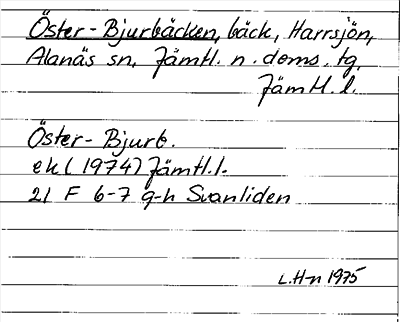 Öster-Bjurbäcken, bäck, Harrsjön,
Alanäs sn, Jämtl. n. doms. tg.
Jämtl. l.
Öster-Bjurb.
ek (1974) Jämtl. l.
21 F 6-7 g-h Svanliden
L.H-n 1975